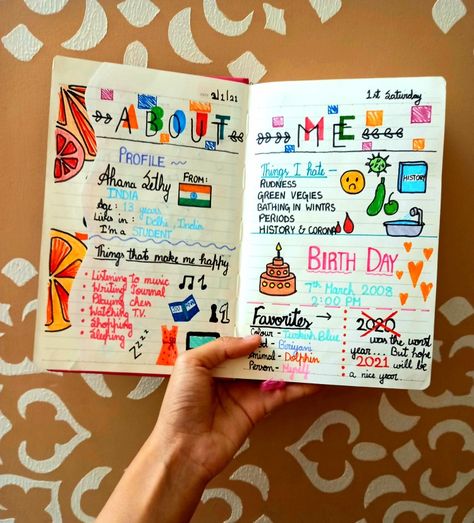 2/1/21
ABOUT
PROFILE
Ahana Sethy
INDIA
FROM:
Age : 13 years
Lives in : Delhi, India
I'm a STUDENT
Things that make me happy
Listening to music
Writing Journal
Playing chess
Watching T.V.
Shopping
Sleeping
zzz
1st Saturday
ME
Things I hate
RUDNESS
GREEN VEGIES
BATHING IN WINTRS
PERIODS
HISTORY & CORONA
HISTORY
BIRTH DAY
7th March 2008
2:00 PM
Favorites
Colour - Turkish Blue
Food - Biriyani
Animal - Dolphin
Person - Myself
2020
was the worst
year... But hope
2021 will be
a nice year.